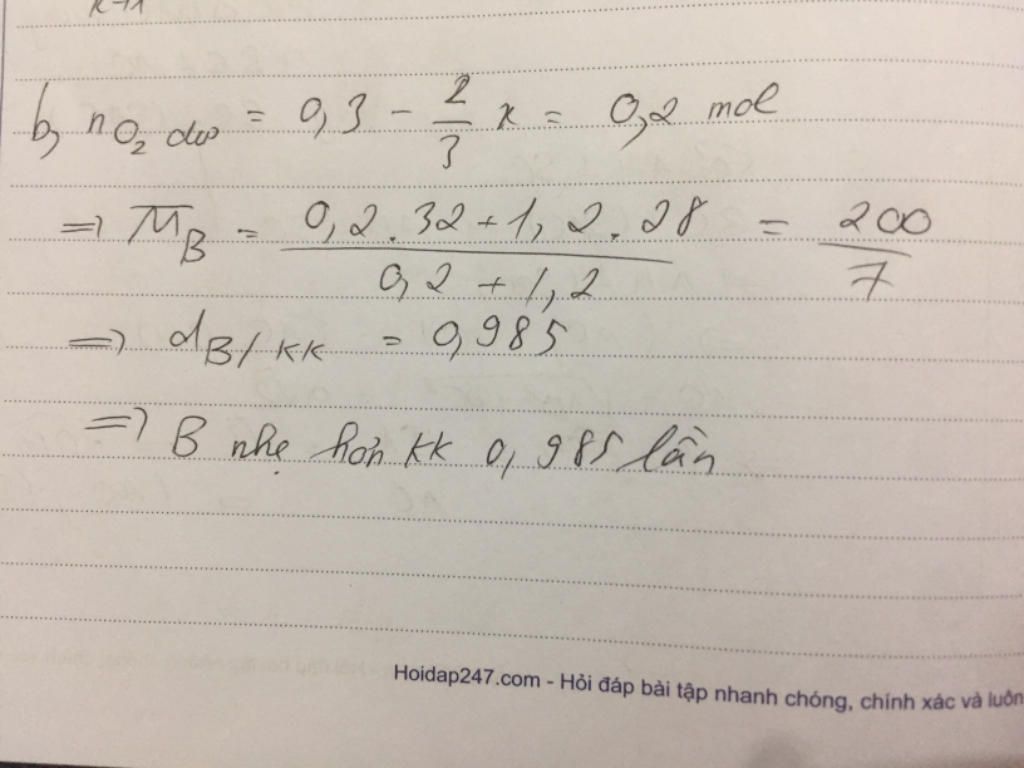 b, nO₂ dư = 0,3 - 2/3 x = 0,2 mol
=> M̅B = (0,2.32+1,2.28)/(0,2+1,2) = 200/7
=> dB/KK = 0,985
=> B nhẹ hơn KK 0,985 lần
Hoidap247.com - Hỏi đáp bài tập nhanh chóng, chính xác và luôn